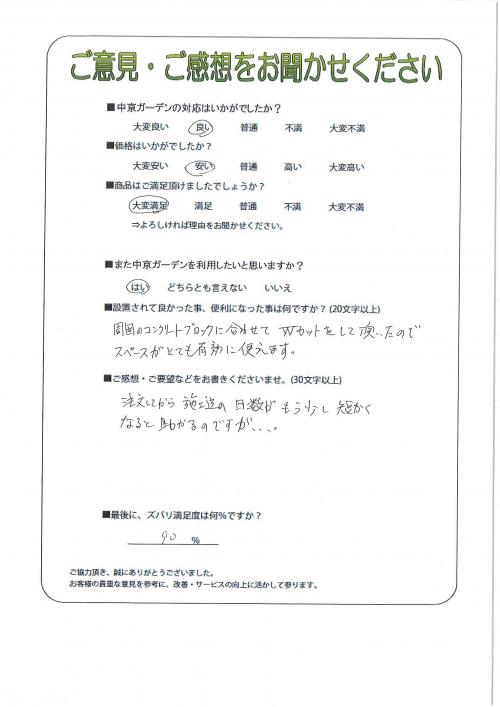 ご意見・ご感想をお聞かせください
■中京ガーデンの対応はいかがでしたか？
大変良い 良い 普通 不満 大変不満
■価格はいかがでしたか？
大変安い 安い 普通 高い 大変高い
■商品はご満足頂けましたでしょうか？
大変満足 満足 普通 不満 大変不満
⇒よろしければ理由をお聞かせください。
■また中京ガーデンを利用したいと思いますか？
はい どちらとも言えない いいえ
■設置されて良かった事、便利になった事は何ですか？(20文字以上)
周囲のコンクリートブロックに合わせて Wカットをして頂いたので
スペースがとても有効に使えます。
■ご感想・ご要望などをお書きくださいませ。(30文字以上)
注文してから 施工迄の 日数が もう少し 短かく
なると 助かるのですが、、、。
■最後に、ズバリ満足度は何％ですか？
90 ％
ご協力頂き、誠にありがとうございました。
お客様の貴重な意見を参考に、改善・サービスの向上に活かして参ります。